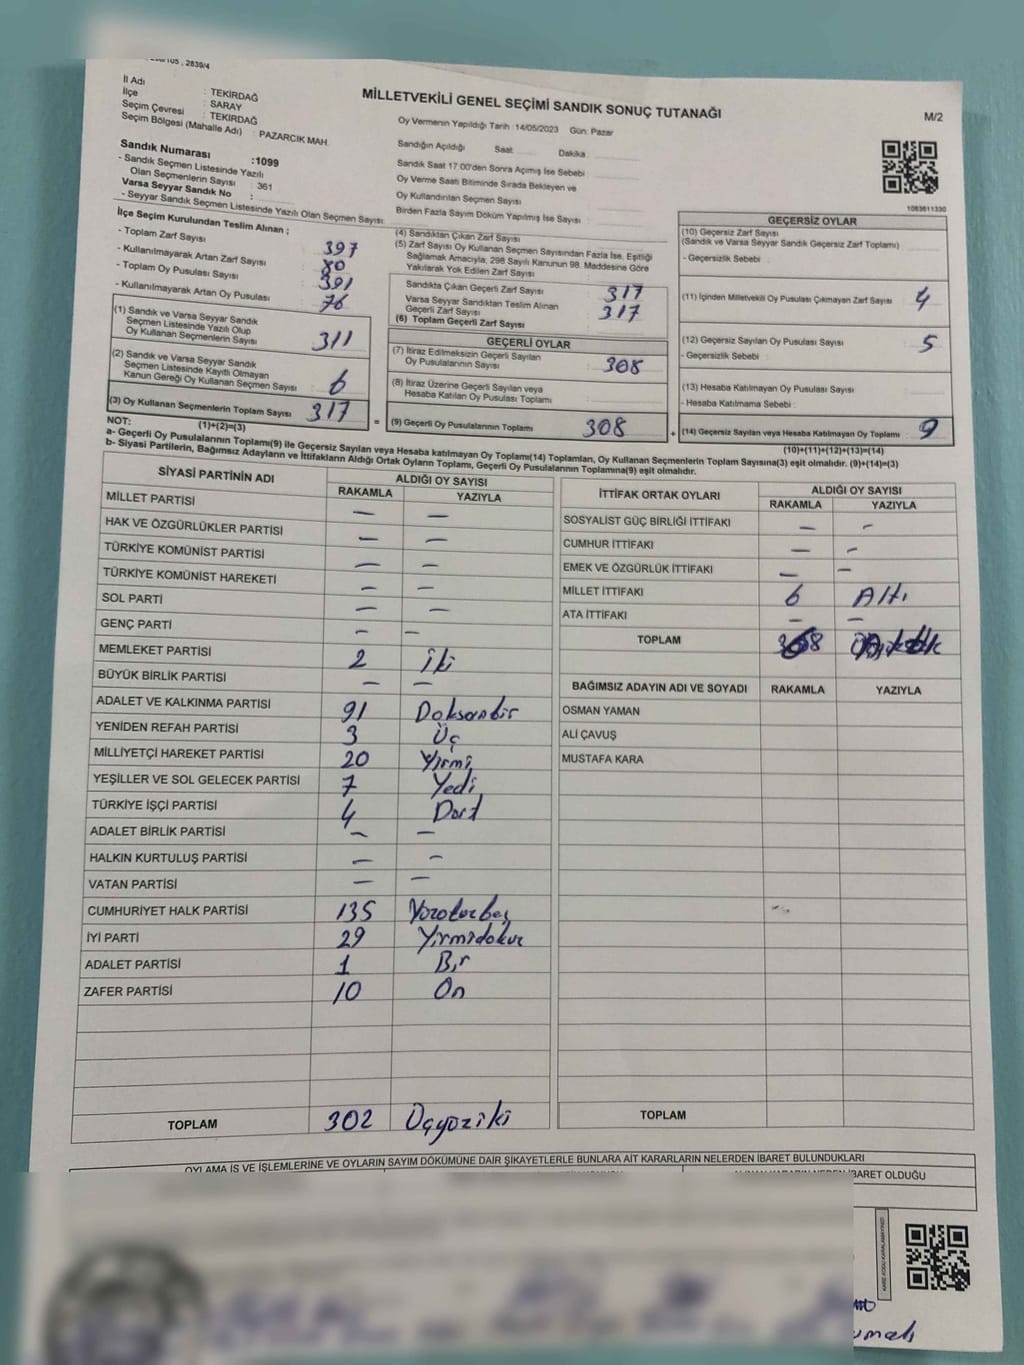 2839/4
İl Adı : TEKİRDAĞ
İlçe : SARAY
Seçim Çevresi : TEKİRDAĞ
Seçim Bölgesi (Mahalle Adı) : PAZARCIK MAH.
MİLLETVEKİLİ GENEL SEÇİMİ SANDIK SONUÇ TUTANAĞI
M/2
Oy Vermenin Yapıldığı Tarih :14/05/2023 Gün: Pazar
Sandığın Açıldığı Saat Dakika
Sandık Saat 17:00'den Sonra Açımış İse Sebebi
Oy Verme Saati Bitiminde Sırada Bekleyen ve
Oy Kullandırılan Seçmen Sayısı
Birden Fazla Sayım Döküm Yapılmış İse Sayısı
1083611330
Sandık Numarası :1099
- Sandık Seçmen Listesinde Yazılı
Olan Seçmenlerin Sayısı : 361
Varsa Seyyar Sandık No :
- Seyyar Sandık Seçmen Listesinde Yazılı Olan Seçmen Sayısı
İlçe Seçim Kurulundan Teslim Alınan ;
- Toplam Zarf Sayısı 397
- Kullanılmayarak Artan Zarf Sayısı 80
- Toplam Oy Pusulası Sayısı 391
- Kullanılmayarak Artan Oy Pusulası 76
(1) Sandık ve Varsa Seyyar Sandık
Seçmen Listesinde Yazılı Olup
Oy Kullanan Seçmenlerin Sayısı 311
(2) Sandık ve Varsa Seyyar Sandık
Seçmen Listesinde Kayıtlı Olmayan
Kanun Gereği Oy Kullanan Seçmen Sayısı 6
(3) Oy Kullanan Seçmenlerin Toplam Sayısı 317
(4) Sandıktan Çıkan Zarf Sayısı
(5) Zarf Sayısı Oy Kullanan Seçmen Sayısından Fazla İse, Eşitliği
Sağlamak Amacıyla; 298 Sayılı Kanunun 98. Maddesine Göre
Yakılarak Yok Edilen Zarf Sayısı
Sandıkta Çıkan Geçerli Zarf Sayısı 317
Varsa Seyyar Sandıktan Teslim Alınan
Geçerli Zarf Sayısı 317
(6) Toplam Geçerli Zarf Sayısı
GEÇERLİ OYLAR
(7) İtiraz Edilmeksizin Geçerli Sayılan
Oy Pusulalarının Sayısı 308
(8) İtiraz Üzerine Geçerli Sayılan veya
Hesaba Katılan Oy Pusulası Toplamı
= (9) Geçerli Oy Pusulalarının Toplamı 308 +
GEÇERSİZ OYLAR
(10) Geçersiz Zarf Sayısı
(Sandık ve Varsa Seyyar Sandık Geçersiz Zarf Toplamı)
- Geçersizlik Sebebi :
(11) İçinden Milletvekili Oy Pusulası Çıkmayan Zarf Sayısı 4
(12) Geçersiz Sayılan Oy Pusulası Sayısı 5
- Geçersizlik Sebebi :
(13) Hesaba Katılmayan Oy Pusulası Sayısı
- Hesaba Katılmama Sebebi :
(14) Geçersiz Sayılan veya Hesaba Katılmayan Oy Toplamı 9
NOT: (1)+(2)=(3)
(10)+(11)+(12)+(13)=(14)
a- Geçerli Oy Pusulalarının Toplamı(9) ile Geçersiz Sayılan veya Hesaba katılmayan Oy Toplamı(14) Toplamları, Oy Kullanan Seçmenlerin Toplam Sayısına(3) eşit olmalıdır. (9)+(14)=(3)
b- Siyasi Partilerin, Bağımsız Adayların ve İttifakların Aldığı Ortak Oyların Toplamı, Geçerli Oy Pusulalarının Toplamına(9) eşit olmalıdır.
SİYASİ PARTİNİN ADI ALDIĞI OY SAYISI
RAKAMLA YAZIYLA
MİLLET PARTİSİ — —
HAK VE ÖZGÜRLÜKLER PARTİSİ — —
TÜRKİYE KOMÜNİST PARTİSİ — —
TÜRKİYE KOMÜNİST HAREKETİ — —
SOL PARTİ — —
GENÇ PARTİ — —
MEMLEKET PARTİSİ 2 İki
BÜYÜK BİRLİK PARTİSİ — —
ADALET VE KALKINMA PARTİSİ 91 Doksanbir
YENİDEN REFAH PARTİSİ 3 Üç
MİLLİYETÇİ HAREKET PARTİSİ 20 Yirmi
YEŞİLLER VE SOL GELECEK PARTİSİ 7 Yedi
TÜRKİYE İŞÇİ PARTİSİ 4 Dört
ADALET BİRLİK PARTİSİ — —
HALKIN KURTULUŞ PARTİSİ — —
VATAN PARTİSİ — —
CUMHURİYET HALK PARTİSİ 135 Yüzotuzbeş
İYİ PARTİ 29 Yirmidokuz
ADALET PARTİSİ 1 Bir
ZAFER PARTİSİ 10 On
TOPLAM 302 Üçyüziki
İTTİFAK ORTAK OYLARI ALDIĞI OY SAYISI
RAKAMLA YAZIYLA
SOSYALİST GÜÇ BİRLİĞİ İTTİFAKI — —
CUMHUR İTTİFAKI — —
EMEK VE ÖZGÜRLÜK İTTİFAKI — —
MİLLET İTTİFAKI 6 Altı
ATA İTTİFAKI — —
TOPLAM
BAĞIMSIZ ADAYIN ADI VE SOYADI RAKAMLA YAZIYLA
OSMAN YAMAN
ALİ ÇAVUŞ
MUSTAFA KARA
TOPLAM
OYLAMA İŞ VE İŞLEMLERİNE VE OYLARIN SAYIM DÖKÜMÜNE DAİR ŞİKAYETLERLE BUNLARA AİT KARARLARIN NELERDEN İBARET BULUNDUKLARI
ALINAN KARARIN NEDEN İBARET OLDUĞU